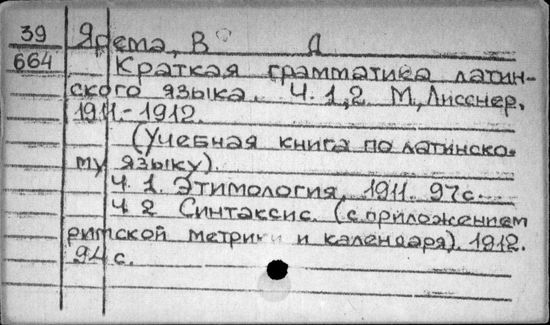 39 Ярема, В Д
664 Краткая грамматика латин-
ского языка. Ч. 1,2 М, Лисснер,
1911.-1912.
(Учебная книга по латинско-
му языку).
Ч. 1. Этимология, 1911. 97с.
Ч 2 Синтаксис. (с приложением
римской метрики и календаря). 1912.
94 с.